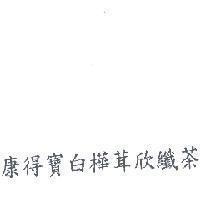 康得寶白樺茸欣纖茶